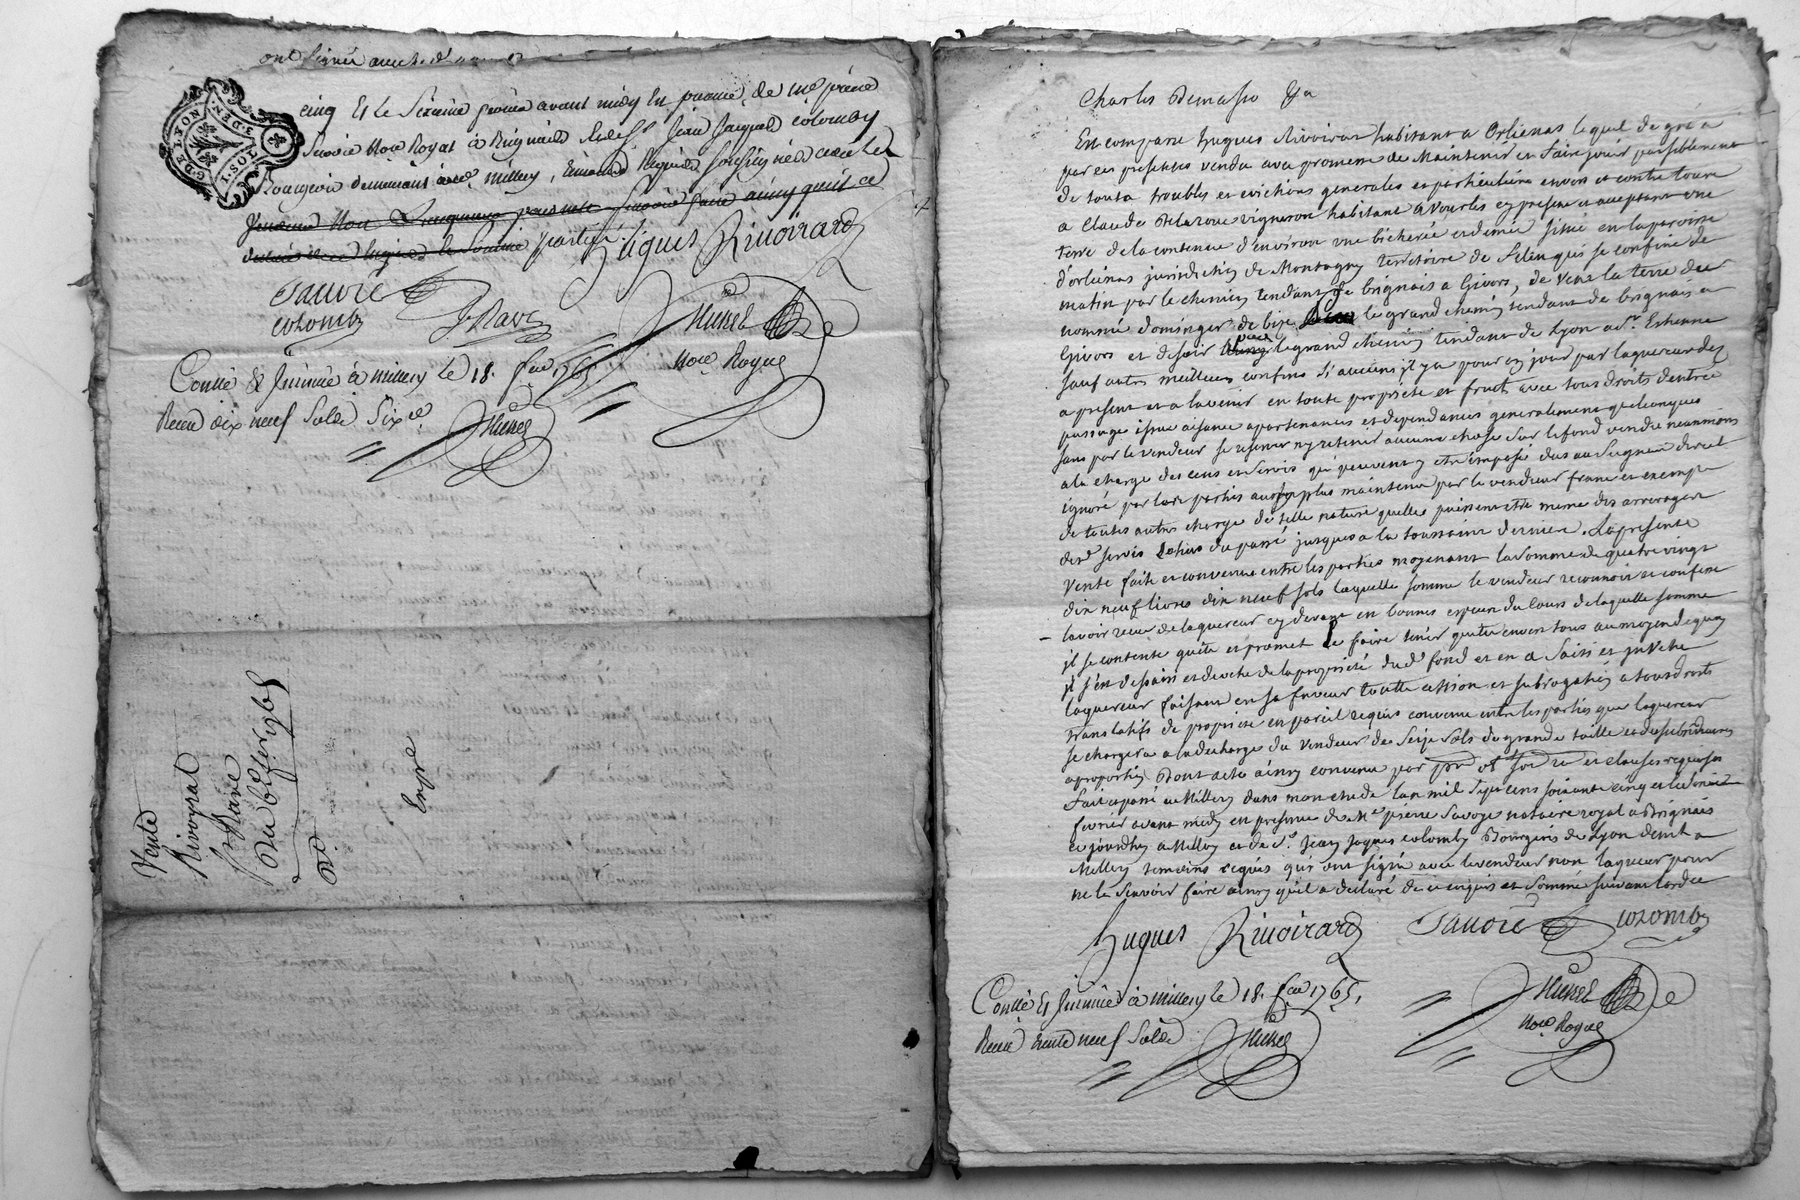 ont signé avec
cinq et le sixieme fevrier avant midy en presence de me pierre
Savoie Nore Royal à Brignais et de sr Jean Jacques colomby
Bourgeois demeurant à millery, temoins requis soussignés avec le
partie
Hugues Rivoirard
Savoie
colomby
Nore Royal
Collé & Insinué à millery le 18. fer 1765
Receu dix neuf sols six d.
G. DE LYON
1. SOL
3. DEN.
Vente
Rivoyrat
Du 6 fer 1765
Expé
Charles Demasso &a
En comparu hugues Rivoirar habitant a Orlienas lequel de gré a
par ces presentes vendu avec promesse de Maintenir et faire jouir paisiblement
de touts troubles et evictions generales et particulieres envers et contre tous
a Claude Delaroue vigneron habitant a Vourles cy present et acceptant une
terre de la contenue d'environ une bicherée et demie situé en la paroisse
d'orlienas jurisdiction de Montagny territoire de Selen qui se confine de
matin par le chemin tendant de brignais a Givors, de vent la terre du
nommé dominger de bize le grand chemin tendant de brignais a
Givors et de soir le grand chemin tendant de Lyon a St Estienne
sauf autres meilleurs confins si aucuns il y a pour en jouir par laquereur dez
a present et a lavenir en toute proprieté et fruits avec tous droits dentrée
passage issue aisance apartenances et dependances generalement quelconques
sans par le vendeur se reserver ny retenir aucune chose sur le fond vendu neanmoins
a la charge des cens et servis qui peuvent y etre imposé dus au Seigneur direct
ignoré par les parties au surplus maintenu par le vendeur franc et exempt
de toutes autres charge de telle nature quelles puissent etre meme des arrerages
desd servis echus du passé jusques a la toussaint derniere. La presente
Vente faite et convenue entre les parties moyenant la somme de quatre vingt
dix neuf livres dix neuf sols laquelle somme le vendeur reconnoit et confesse
lavoir receu de laquereur cy devant en bonnes especes du cours de laquelle somme
il se contente quitte et promet le faire tenir quitte envers tous au moyen de quoy
il s'est dessaisi et devetu de la proprieté dud fond et en a saisi et investu
laquereur faisant en sa faveur toutte cession et subrogation a tous droits
translatifs de proprieté en pareil requis convenu entre les parties que laquereur
se chargera a la decharge du Vendeur de Seize Sols de grande taille et
a proportion Dont acte ainsy convenu par et clauses requises
fait et passé a Millery dans mon etude lan mil sept cens soixante cinq et le sixieme
fevrier avant midy en presence de Me pierre Savoye notaire royal a Brignais
ce jourdhuy a Millery et de sr Jean Jaques colomby Bourgeois de Lyon demt a
Millery temoins requis qui ont signé avec le vendeur non laquereur pour
ne le scavoir faire ainsy quil a declaré de ce enquis et sommé suivant lord ce
Hugues Rivoirard Savoie colomby
Collé & Insinué à millery le 18. fer 1765.
Nore Royal
Receu trente neuf sols